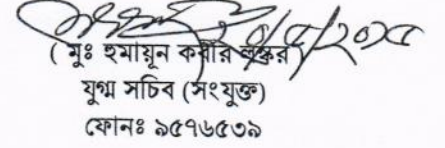 ( মুঃ হুমায়ূন কবীর লস্কর)
যুগ্ম সচিব (সংযুক্ত)
ফোনঃ ৯৫৭৬৫৩৯